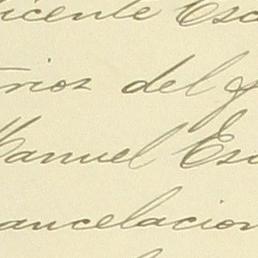 icente Esc
rios del
Manuel Esc
ancelacion